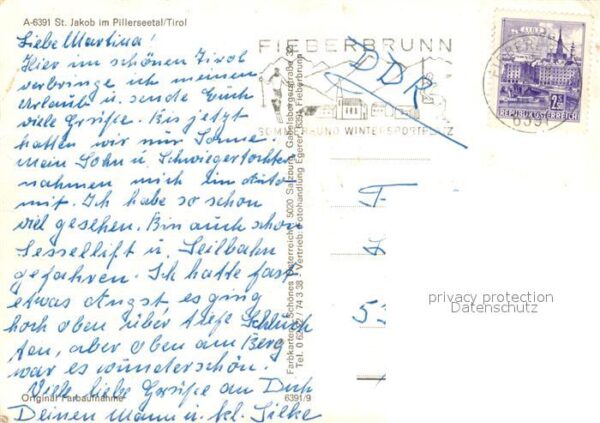 A-6391 St. Jakob im Pillerseetal/Tirol
Liebe Martina!
Hier im schönen Tirol
verbringe ich meinen
Urlaub u. sende Euch
viele Grüße. Bis jetzt
hatten wir nur Sonne.
Mein Sohn u. Schwiegertochter
nahmen mich im Auto
mit. Ich habe so schon
viel gesehen. Bin auch schon
Sessellift u. Seilbahn
gefahren. Ich hatte fast
etwas Angst es ging
hoch oben über tiefe Schluch
ten, aber oben am Berg
war es wunderschön.
Viele liebe Grüße an Dich
Deinen Mann u. kl. Silke
Original Farbaufnahme
6391/9
Farbkarten "Schönes Österreich", 5020 Salzburg, Gabelsbergerstraße
Tel. 0 62 22 / 74 3 38 - Vertrieb: Fotohandlung Egerer, 6391 Fieberbrunn
FIEBERBRUNN
SOMMER UND WINTERSPORTPLATZ
DDR
LINZ
2.5
REPUBLIK ÖSTERREICH
6391
F
53
privacy protection
Datenschutz